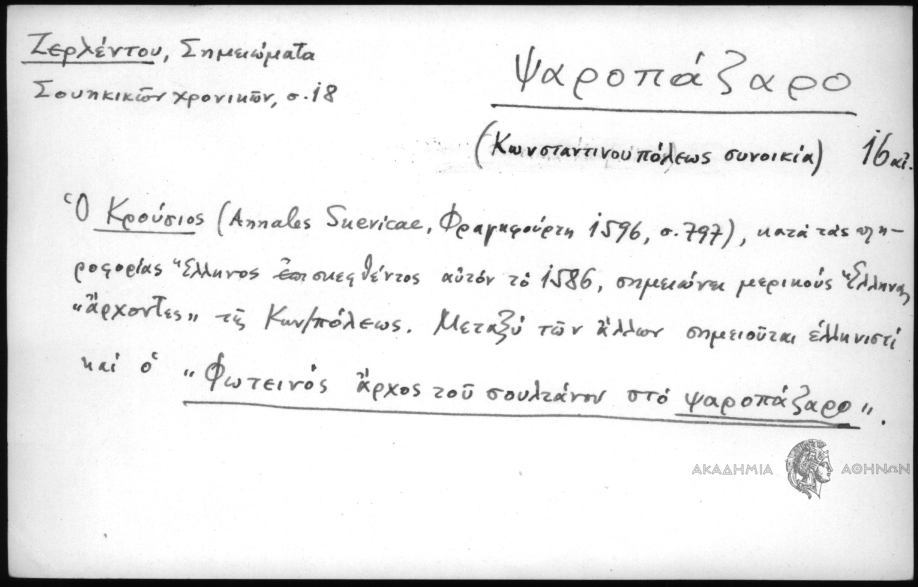 Ζερλέντου, Σημειώματα
Σουηκικῶν χρονικῶν, σ. 18
Ψαροπάζαρο
(Κωνσταντινουπόλεως συνοικία) 16 αἰ.
Ὁ Κρούσιος (Annales Suevicae, Φραγκφούρτη 1596, σ. 797), κατὰ τὰς πλη-
ροφορίας Ἕλληνος ἐπισκεφθέντος αὐτὸν τὸ 1586, σημειώνει μερικοὺς Ἕλληνας
"ἄρχοντες" τῆς Κων/πόλεως. Μεταξὺ τῶν ἄλλων σημειοῦται ἑλληνιστὶ
καὶ ὁ "Φωτεινὸς ἄρχος τοῦ σουλτάνου στὸ ψαροπάζαρο".
ΑΚΑΔΗΜΙΑ ΑΘΗΝΩΝ